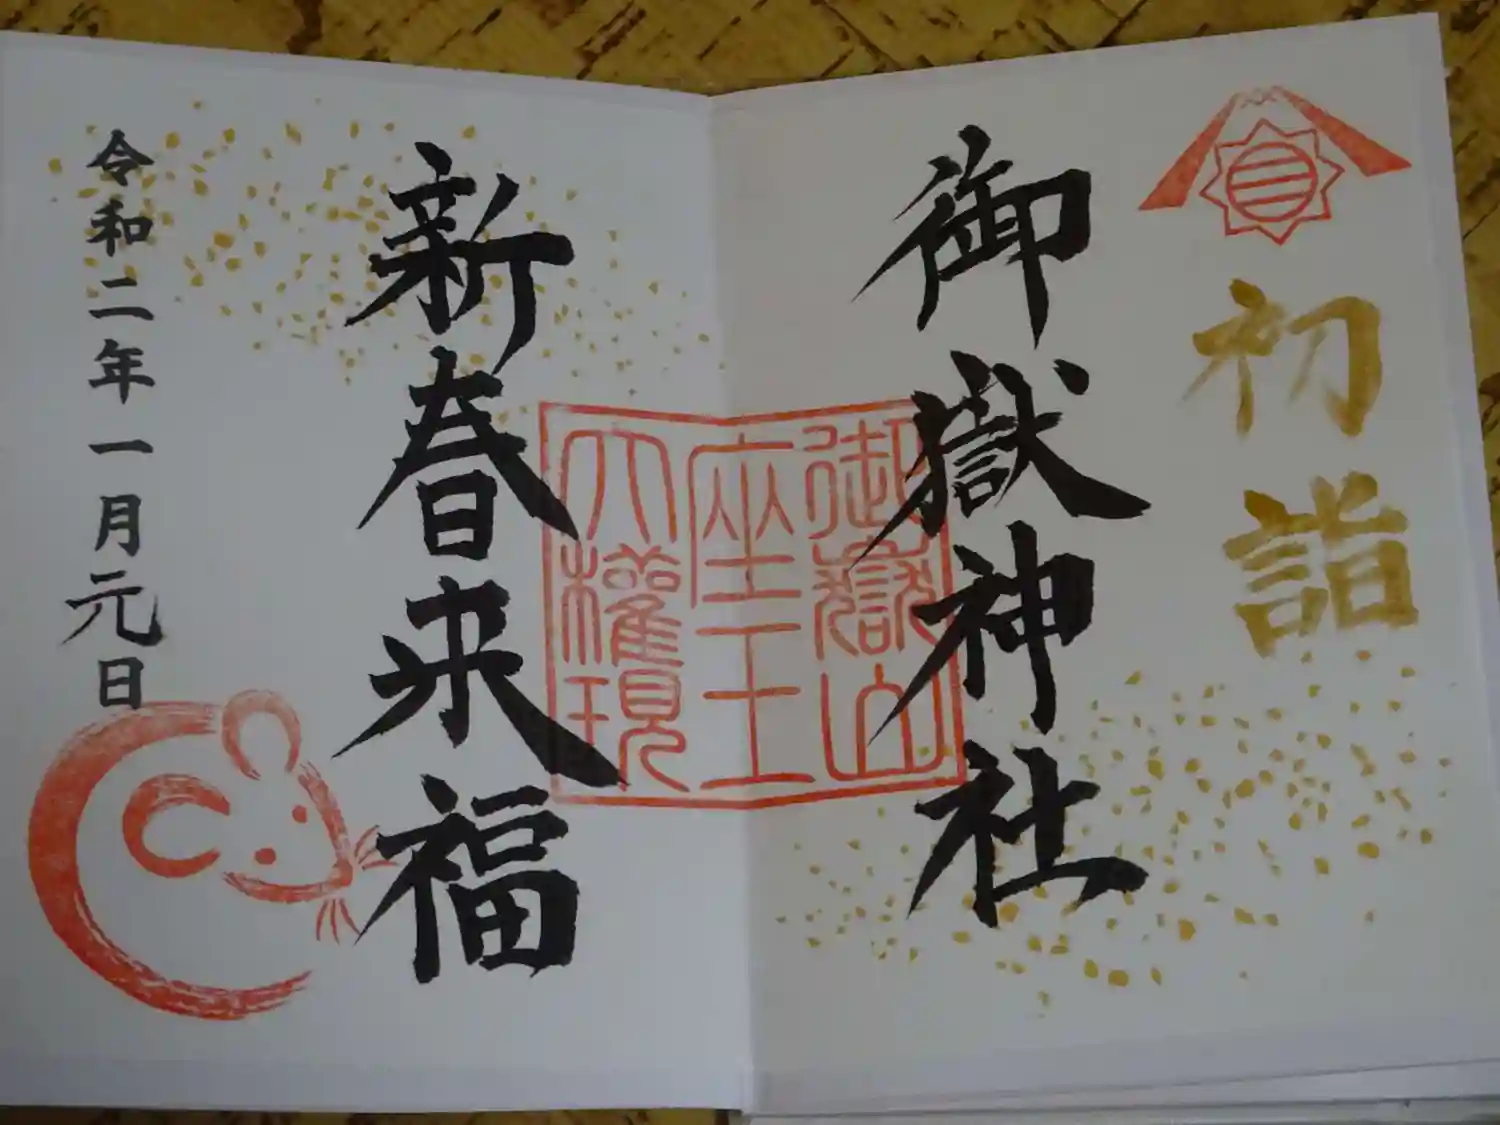 初詣
御嶽神社
御嶽山
座王
大權現
新春来福
令和二年一月元日